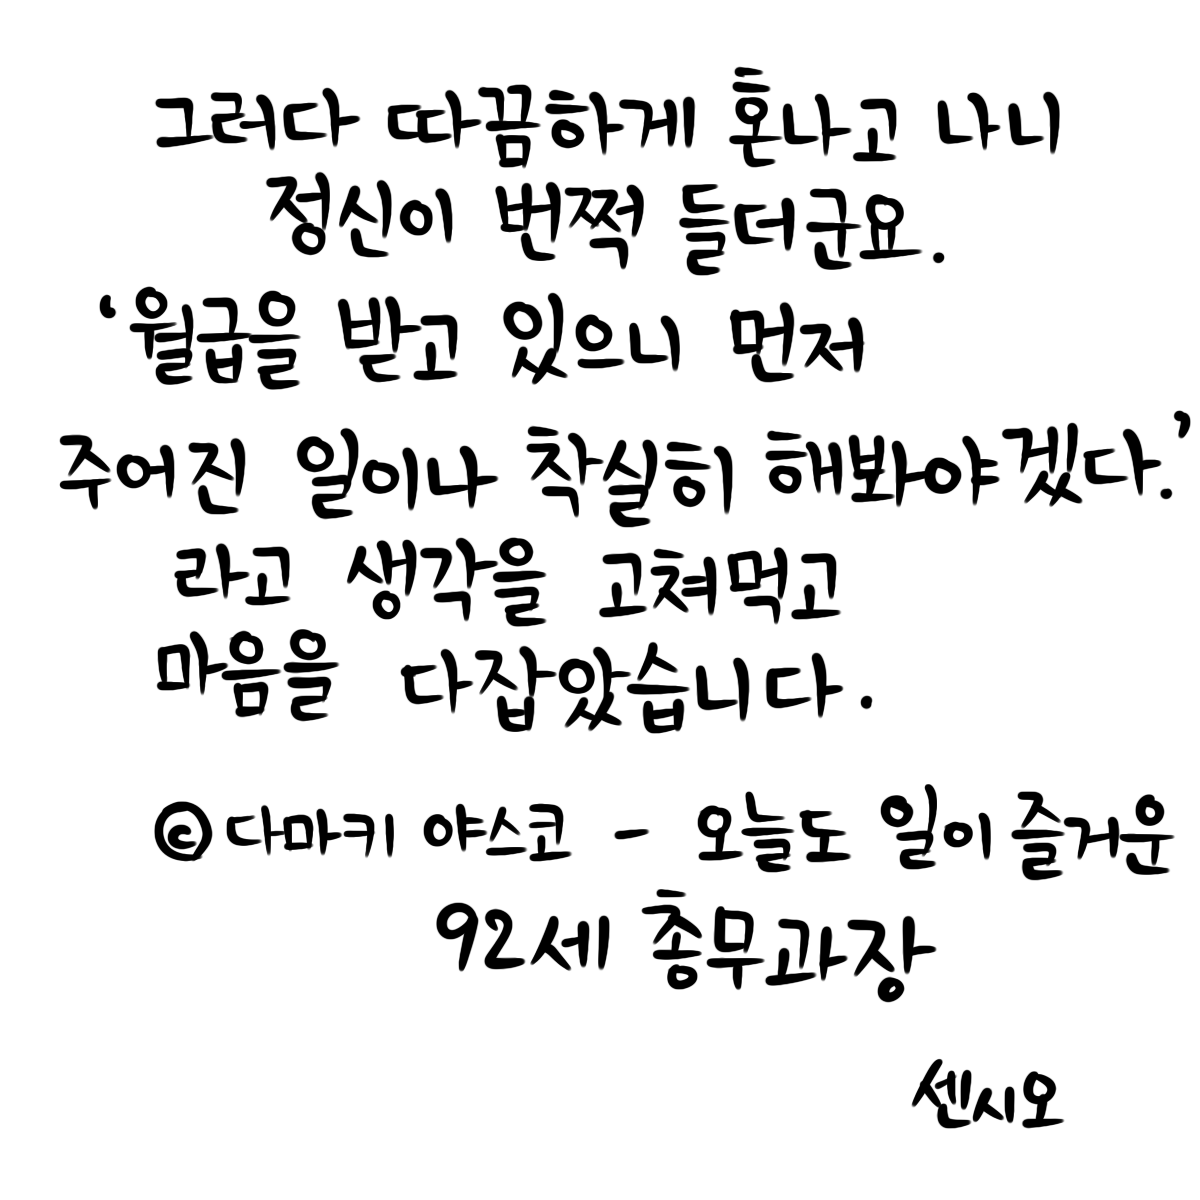 그러다 따끔하게 혼나고 나니
정신이 번쩍 들더군요.
'월급을 받고 있으니 먼저
주어진 일이나 착실히 해봐야겠다.'
라고 생각을 고쳐먹고
마음을 다잡았습니다.
©다마키 야스코 - 오늘도 일이 즐거운
92세 총무과장
센시오